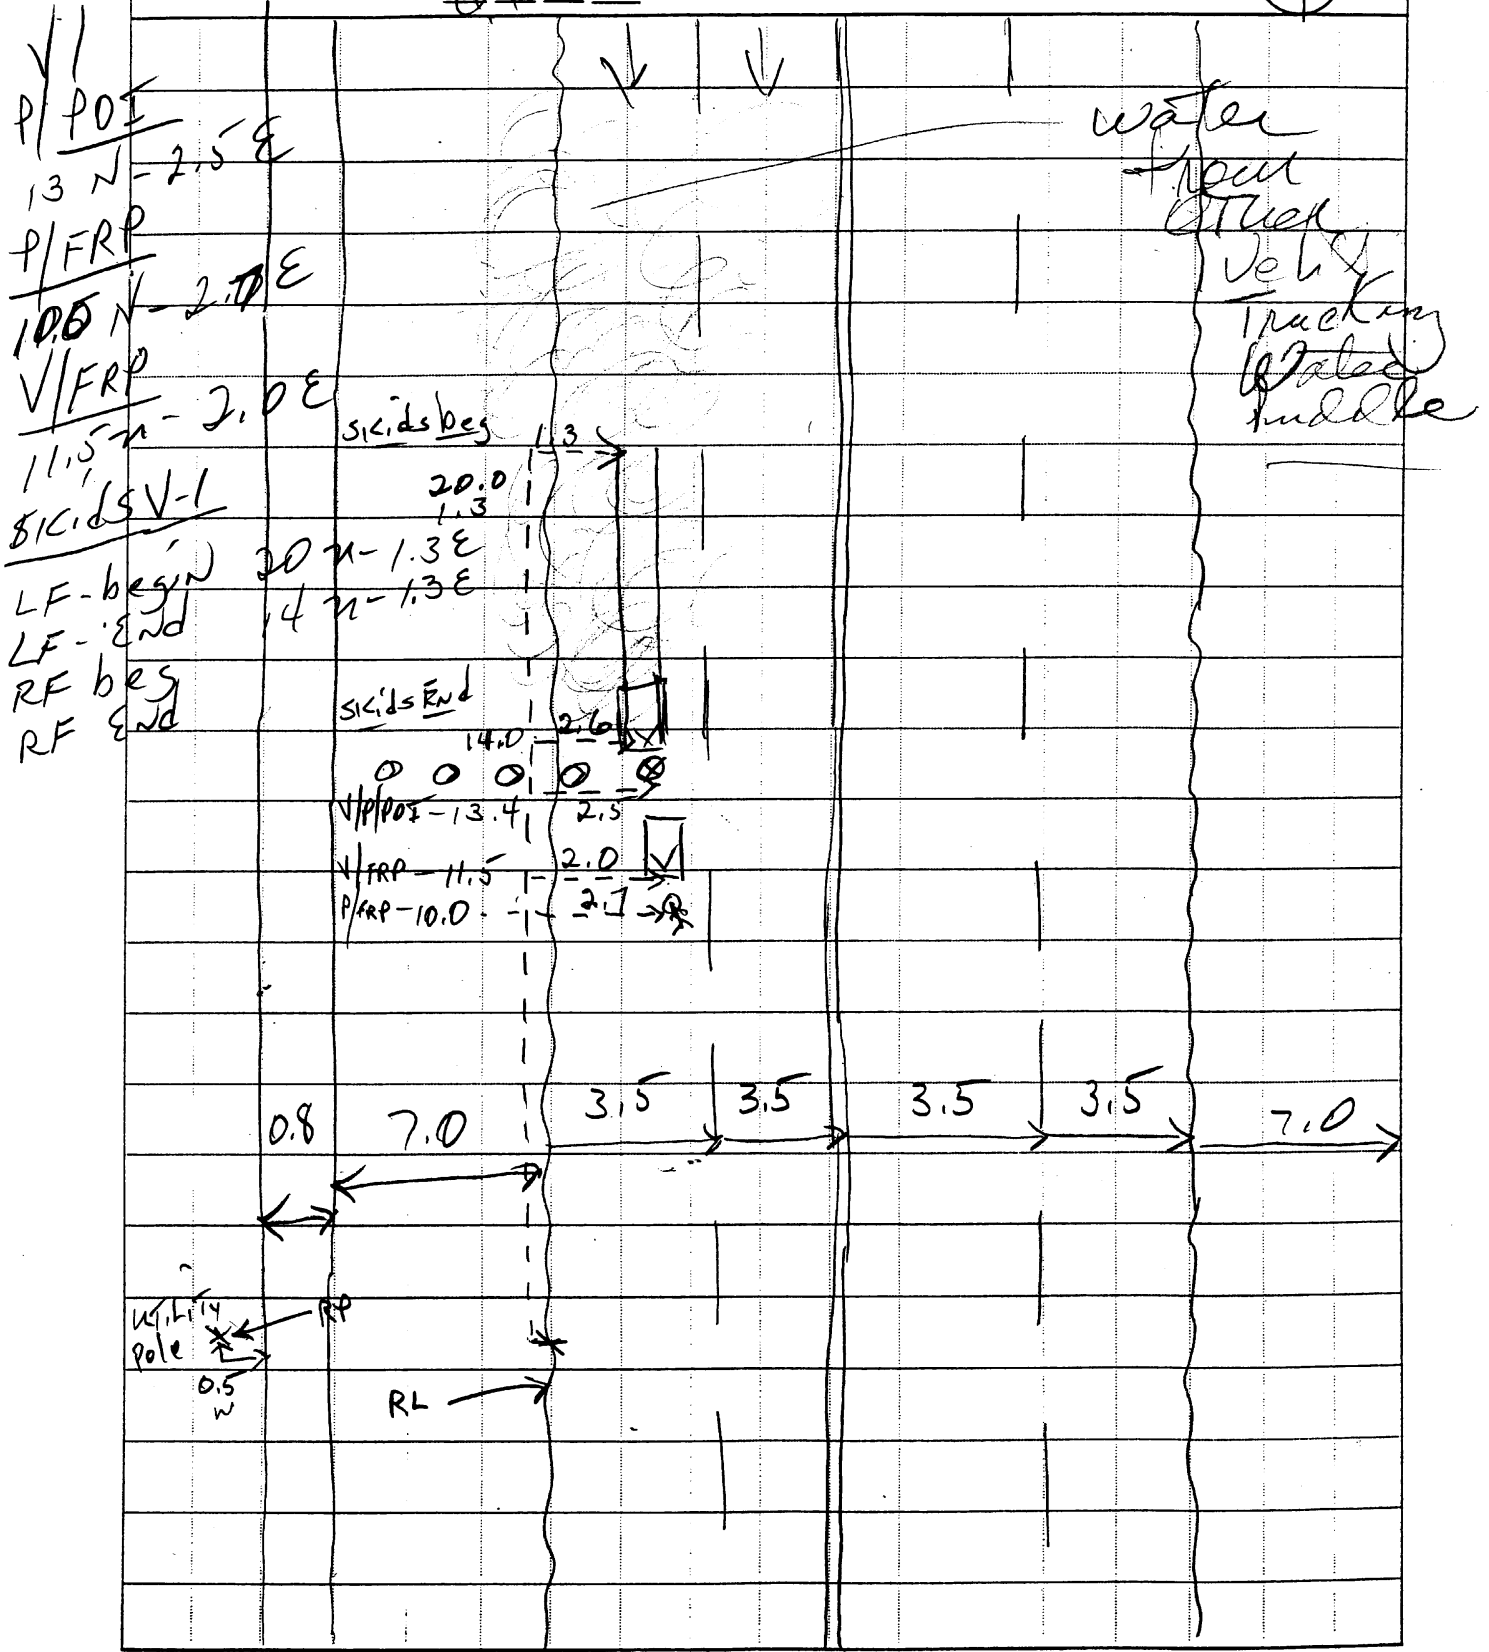 V1
P/POI
13 N - 2.5 E
P/FRP
10.0 N - 2.7 E
V/FRP
11.5 n - 2.0 E
Skids V-1
LF-begin 20 n - 1.3 E
LF-End 14 n - 1.3 E
RF beg
RF End
water
from
other
Veh's
Tracking
Water
Puddle
skids beg 1.3
20.0
1.3
skids End
14.0 2.6
V/P/POI - 13.4 2.5
V/FRP - 11.5 2.0
V
P/FRP - 10.0 2.7
0.8 7.0 3.5 3.5 3.5 3.5 7.0
utility
pole
RP
0.5
w
RL